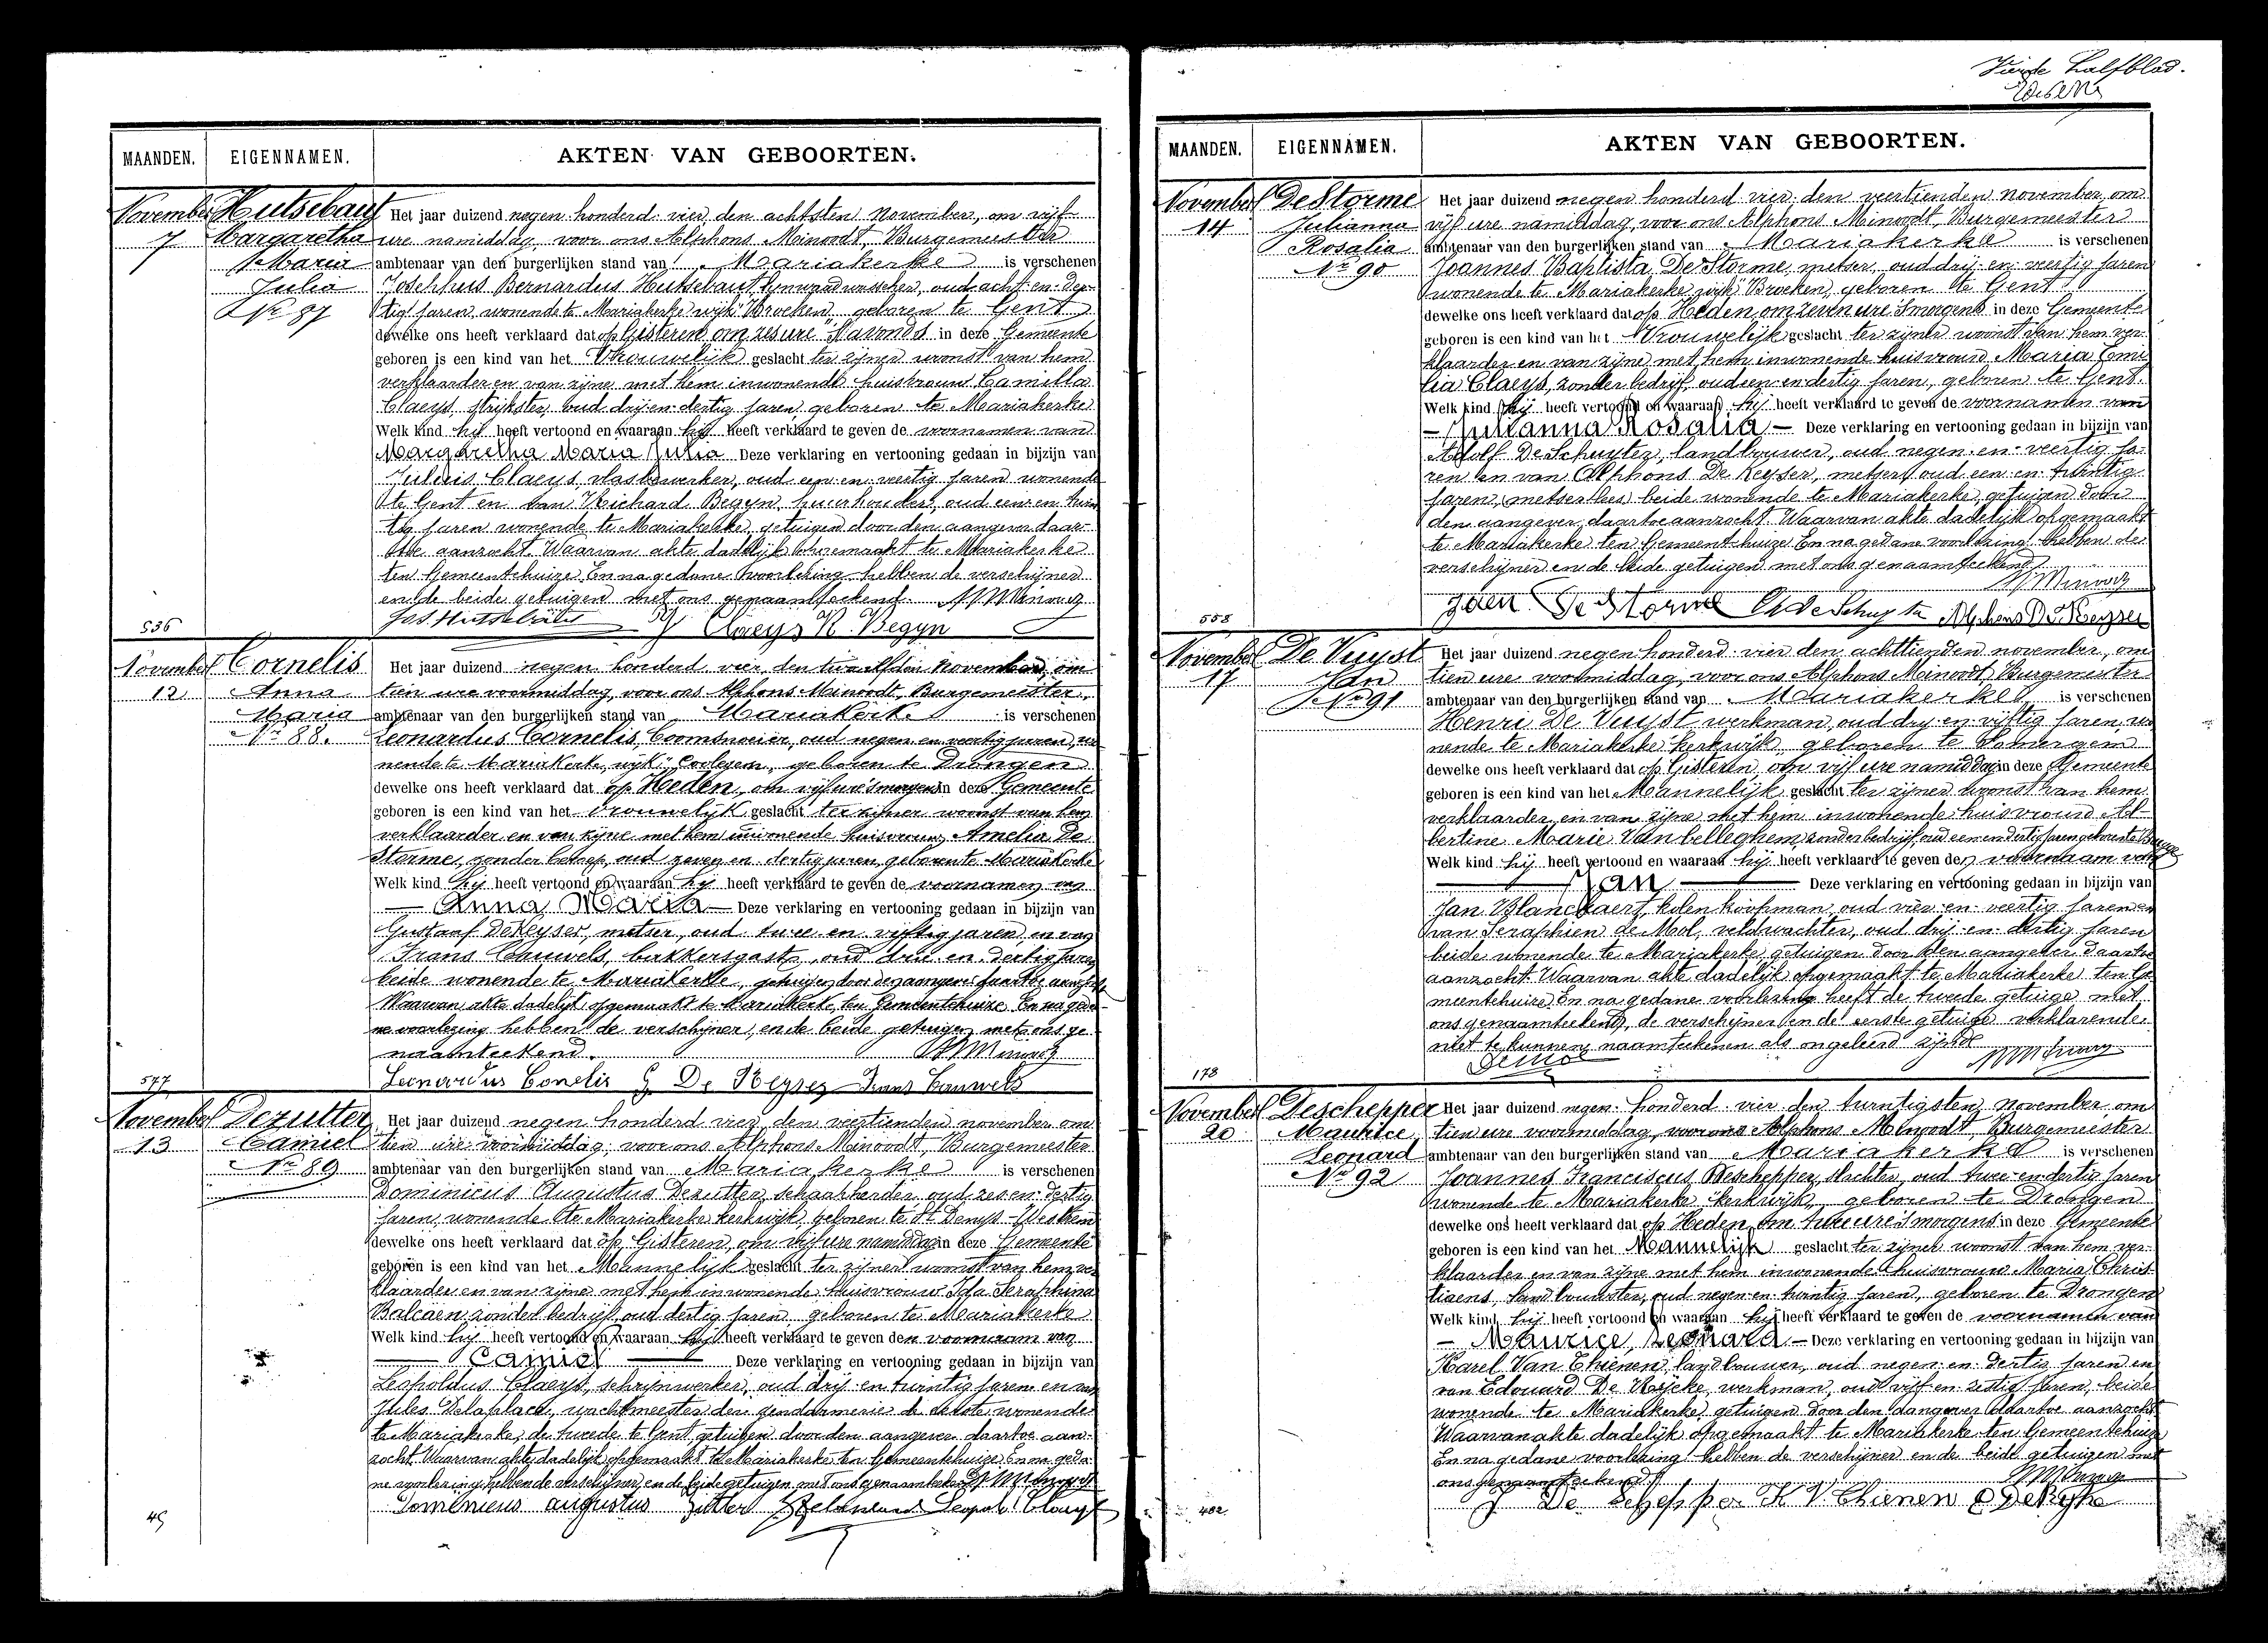 Vierde halfblad.
MAANDEN. EIGENNAMEN. AKTEN VAN GEBOORTEN.
November
7
Hutsebaut
Margaretha
Maria
Julia
No 87
536
Het jaar duizend negen honderd vier, den achtsten November, om vijf
ure namiddag, voor ons Alphons Minoodt, Burgemeester
ambtenaar van den burgerlijken stand van Mariakerke is verschenen
Josephus Bernardus Hutsebaut, lynwaadwasscher, oud acht-en-der-
tig jaren, wonende te Mariakerke wijk "Broeken" geboren te Gent
dewelke ons heeft verklaard dat op Gisteren om zes ure 's avonds in deze Gemeente
geboren is een kind van het Vrouwelijk geslacht ter zijner woonst van hem
verklaarder en van zijne met hem inwonende huisvrouw Camilla
Claeys, strijkster, oud drij-en-dertig jaren, geboren te Mariakerke
Welk kind hij heeft vertoond en waaraan hij heeft verklaard te geven de voornamen van
Margaretha Maria Julia Deze verklaring en vertooning gedaan in bijzijn van
Juliis Claeys vlasbewerker, oud een-en-veertig jaren wonende
te Gent en van Richard Begyn, huurhouder, oud een-en-twin
tig jaren wonende te Mariakerke, getuigen door den aangever daar-
toe aanzocht. Waarvan akte dadelijk opgemaakt te Mariakerke
ten Gemeentehuize. En na gedane voorlezing hebben de verschijner
en de beide getuigen met ons genaamteekend. A Minoodt
Jos Hutsebaut Claeys R. Begyn
November
12
Cornelis
Anna
Maria
No 88.
577
Het jaar duizend negen honderd vier, den twaalfden November, om
tien ure voormiddag, voor ons Alphons Minoodt, Burgemeester,
ambtenaar van den burgerlijken stand van Mariakerke is verschenen
Leonardus Cornelis, boomsnoeier, oud negen en veertig jaren, wo
nende te Mariakerke, wijk "Coolegem", geboren te Drongen
dewelke ons heeft verklaard dat op Heden, om vijf ure 's morgens in deze Gemeente
geboren is een kind van het Vrouwelijk geslacht ter zijner woonst van hem
verklaarder en van zijne met hem inwonende huisvrouw Amelia De
Storme, zonder beroep, oud zeven en dertig jaren, geboren te Mariakerke
Welk kind hij heeft vertoond en waaraan hij heeft verklaard te geven de voornamen van
— Anna Maria — Deze verklaring en vertooning gedaan in bijzijn van
Gustaaf DeKeyser, metser, oud twee en vijftig jaren, en van
Frans Cauwels, bakkersgast, oud drie en dertig jaren
beide wonende te Mariakerke, getuigen door den aangever daartoe aanzocht
Waarvan akte dadelijk opgemaakt te Mariakerke, ten Gemeentehuize. En na geda-
ne voorlezing hebben de verschijner, en de beide getuigen met ons ge-
naamteekend. A Minoodt
Leonardus Conelis G De Keyser Frans Cauwels
November
13
Dezutter
Camiel
No 89
45
Het jaar duizend negen honderd vier, den veertienden november om
tien ure voormiddag, voor ons Alphons Minoodt, Burgemeester
ambtenaar van den burgerlijken stand van Mariakerke is verschenen
Dominicus Augustus Dezutter, schaapherder, oud zes-en-dertig
jaren, wonende te Mariakerke kerkwijk, geboren te St Denys-Westrem
dewelke ons heeft verklaard dat op Gisteren, om vijf ure namiddag in deze Gemeente
geboren is een kind van het Mannelijk geslacht ter zijner woonst van hem ver
klaarder en van zijne met hem inwonende huisvrouw Ida Seraphina
Balcaen, zonder bedrijf, oud dertig jaren, geboren te Mariakerke
Welk kind hij heeft vertoond en waaraan hij heeft verklaard te geven den voornaam van
— Camiel — Deze verklaring en vertooning gedaan in bijzijn van
Leopoldus Claeys, schrijnwerker, oud drij-en-twintig jaren en van
Jules Delaplace, wachtmeester der gendarmerie de eerste wonende
te Mariakerke, de tweede te Gent, getuigen door den aangever daartoe aan-
zocht. Waarvan akte dadelijk opgemaakt te Mariakerke ten Gemeentehuize. En na geda-
ne voorlezing hebben de verschijner en de beide getuigen met ons genaamteekend A Minoodt
Dominicus augustus zutter Leopold Claeys
MAANDEN. EIGENNAMEN. AKTEN VAN GEBOORTEN.
November
14
DeStorme
Julianna
Rosalia
No 90
558
Het jaar duizend negen honderd vier, den veertienden november, om
vijf ure namiddag, voor ons Alphons Minoodt, Burgemeester
ambtenaar van den burgerlijken stand van Mariakerke is verschenen
Joannes Baptista DeStorme, metser, oud drij-en-veertig jaren
wonende te Mariakerke wijk "Broeken", geboren te Gent
dewelke ons heeft verklaard dat op Heden, om zeven ure 's morgens in deze Gemeente
geboren is een kind van het Vrouwelijk geslacht ter zijner woonst van hem ver-
klaarder en van zijne met hem inwonende huisvrouw Maria Emi
lia Claeys, zonder bedrijf, oud een-en-dertig jaren, geboren te Gent.
Welk kind hij heeft vertoond en waaraan hij heeft verklaard te geven de voornamen van
— Julianna Rosalia — Deze verklaring en vertooning gedaan in bijzijn van
Adolf DeSchuyter, landbouwer, oud negen-en-veertig ja-
ren en van Alphons De Keyser, metser, oud een-en-twintig
jaren, beide wonende te Mariakerke, getuigen door
den aangever daartoe aanzocht. Waarvan akte dadelijk opgemaakt
te Mariakerke ten Gemeentehuize. En na gedane voorlezing hebben de
verschijner en de beide getuigen met ons genaamteekend
A Minoodt
Jaen De Storme DeSchuyter Alphons De Keyser
November
17
De Vuyst
Jan
No 91
178
Het jaar duizend negen honderd vier den achttienden november, om
tien ure voormiddag, voor ons Alphons Minoodt, Burgemeester
ambtenaar van den burgerlijken stand van Mariakerke is verschenen
Henri De Vuyst werkman, oud dry-en-vijftig jaren, wo
nende te Mariakerke kerkwijk, geboren te Somergem
dewelke ons heeft verklaard dat op Gisteren, om vijf ure namiddag in deze Gemeente
geboren is een kind van het Mannelijk geslacht ter zijner woonst van hem
verklaarder en van zijne met hem inwonende huisvrouw Al-
bertine Marie Vanbelleghem, zonder bedrijf, oud een en dertig jaren geboren te Brugge
Welk kind hij heeft vertoond en waaraan hij heeft verklaard te geven den voornaam van
— Jan — Deze verklaring en vertooning gedaan in bijzijn van
Jan Blanckaert, kolenkoopman, oud vier-en-veertig jaren en
van Seraphien de Mol, veldwachter, oud drij-en-dertig jaren
beide wonende te Mariakerke, getuigen door den aangever daartoe
aanzocht. Waarvan akte dadelijk opgemaakt te Mariakerke ten Ge
meentehuize. En na gedane voorlezing heeft de tweede getuige met
ons genaamteekend, de verschijner en de eerste getuige verklarende
niet te kunnen naamteekenen als ongeleerd zijnde
Demol A Minoodt
November
20
Deschepper
Maurice
Leonard
No 92
402
Het jaar duizend negen honderd vier den twintigsten November, om
tien ure voormiddag, voor ons Alphons Minoodt, Burgemeester
ambtenaar van den burgerlijken stand van Mariakerke is verschenen
Joannes Franciscus Deschepper, slachter, oud twee-en-dertig jaren
wonende te Mariakerke kerkwijk, geboren te Drongen
dewelke ons heeft verklaard dat op Heden, om twee ure 's morgens in deze Gemeente
geboren is een kind van het Mannelijk geslacht ter zijner woonst van hem ver-
klaarder en van zijne met hem inwonende huisvrouw Maria Chris-
tiaens, landbouwster, oud negen-en-twintig jaren, geboren te Drongen
Welk kind hij heeft vertoond en waaraan hij heeft verklaard te geven de voornamen van
— Maurice, Leonard — Deze verklaring en vertooning gedaan in bijzijn van
Karel Van Thienen, landbouwer, oud negen-en-dertig jaren en
van Edouard De Rycke, werkman, oud vijf-en-zestig jaren, beide
wonende te Mariakerke, getuigen door den aangever daartoe aanzocht
Waarvan akte dadelijk opgemaakt te Mariakerke ten Gemeentehuize
En na gedane voorlezing hebben de verschijner en de beide getuigen met
ons genaamteekend A Minoodt
J De Schepper K V Thienen E DeRycke